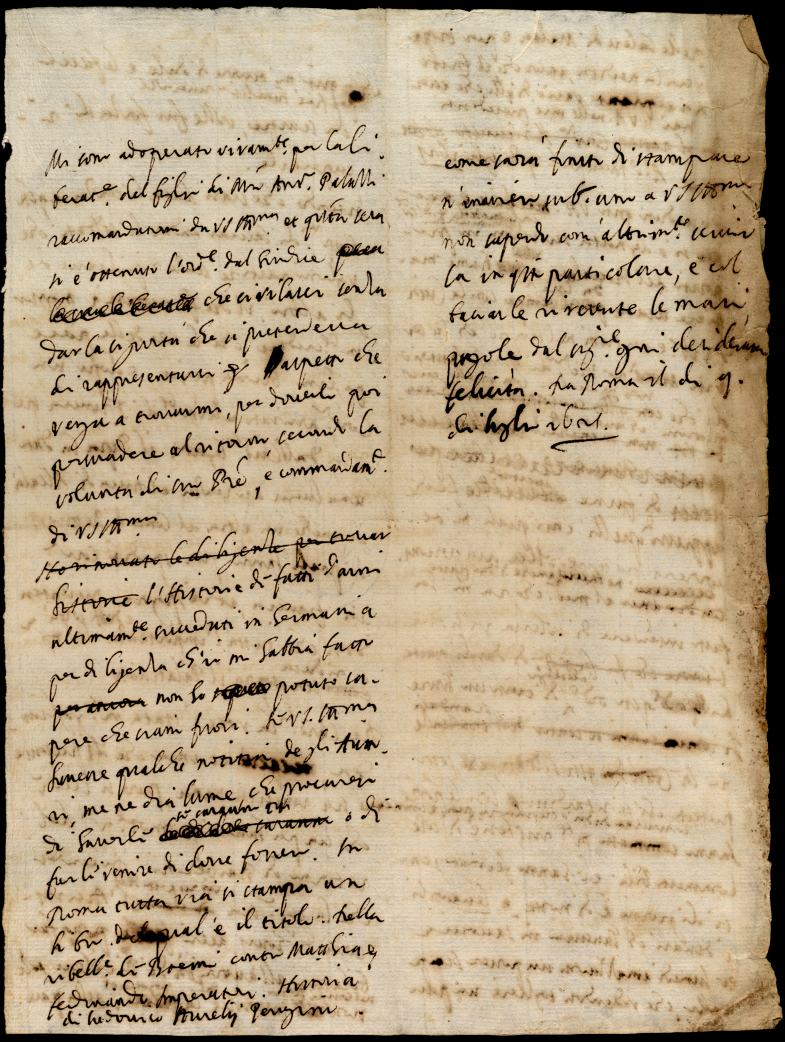 Mi sono adoperato vivam.te per la li-
berat.e dei figli di M.o Ant.o Palutti
raccomandatomi da VS Ill.ma et q.sta sera
si è ottenuto l'ord.e dal Giudice
che si rilasci senza
dar la sicurtà che si pretendeva
di rappresentarsi aspetto che
venga a trovarmi, per doverli poi
persuadere al ritorno secondo la
volontà di suo Pre, e commandam.to
di VS Ill.ma
Ho rinovato le diligenze per trovar
historie l'Historie de fatti d'armi
ultimam.te succeduti in Germania
per diligenza ch'io mi habbia fatto
per ancora non ho potuto sa-
pere che siano fuori. Se VS. Ill.ma
havesse qualche notitia degli Auto-
ri, me ne dia lume che procurerò
di haverli se saranno qui
saranno o di
farli venire di dove fossero. In
Roma tuttavia si stampa un
libro del qual è il titolo. Della
ribell.e de Boemi contro Matthia e
Ferdinando Imperatori. Historia
di Lodovico Aurelij Perugino.
come sarà finito di stampare
n'invierò sub.o uno a VS Ill.ma
non sapendo com'altrim.te servir
la in q.sto particolare, e col
baciarle riverente le mani,
pregole dal Sig.re ogni desiderata
felicità. Da Roma il di 9.
di luglio